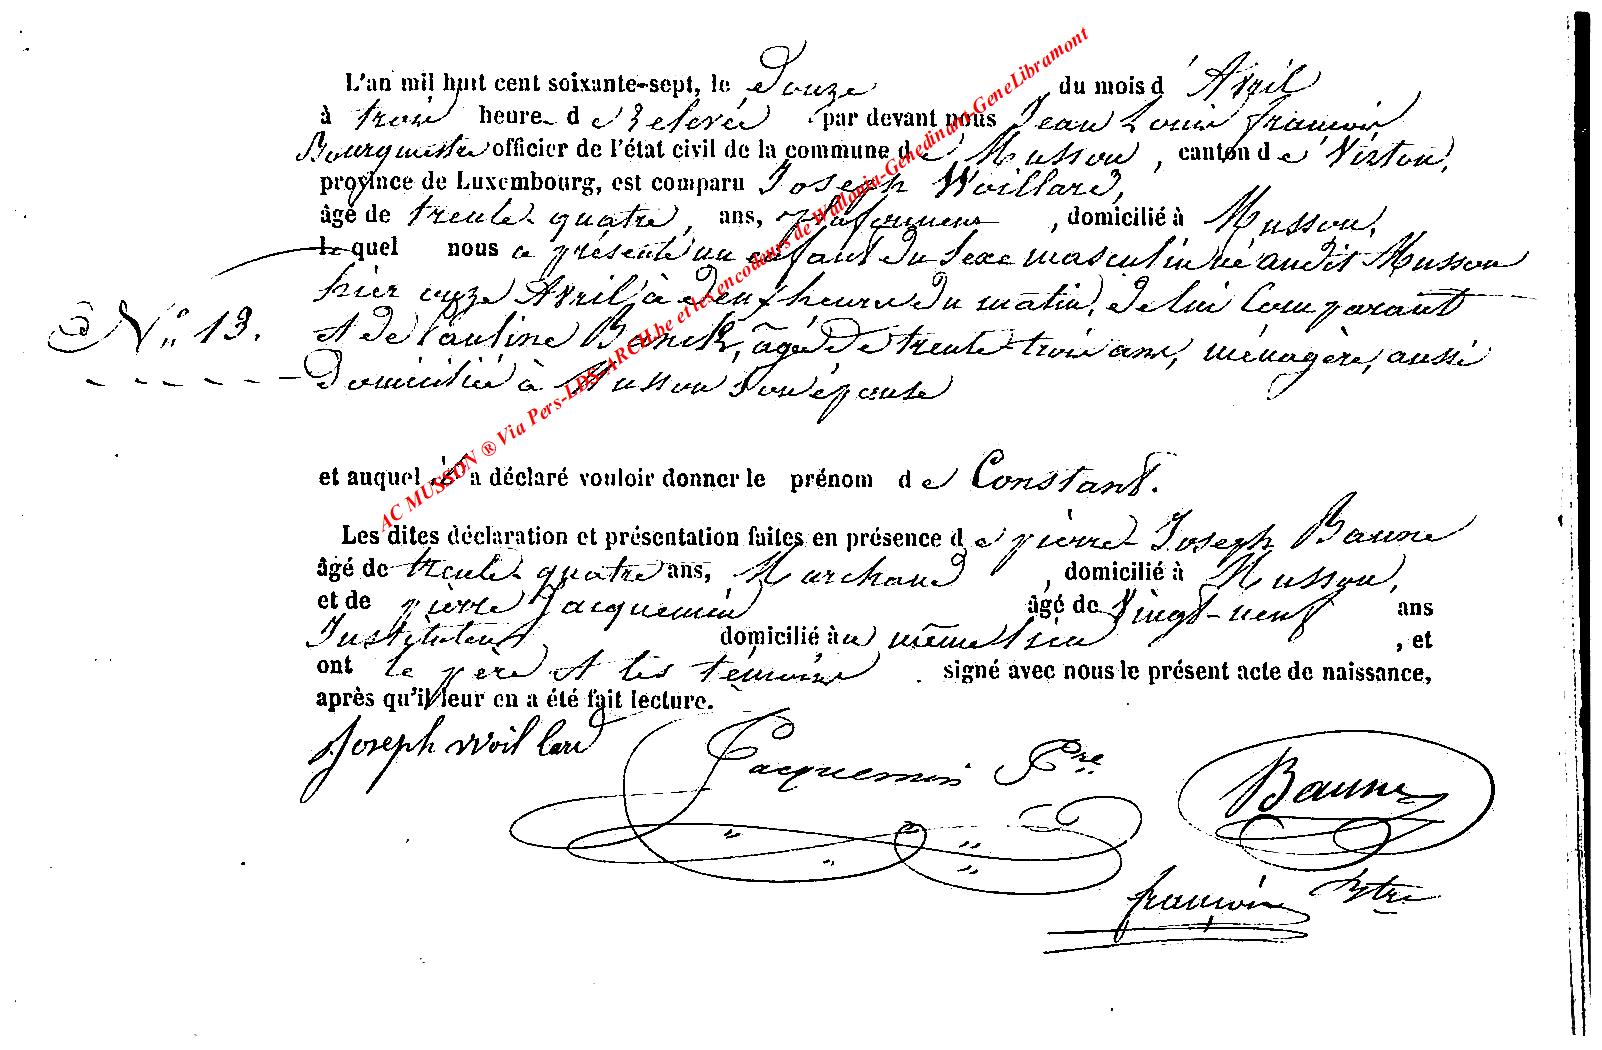 L'an mil huit cent soixante-sept, le Douze du mois d' Avril
à trois heure de Relevée par devant nous Jean Louis françois
Bourgmestre officier de l'état civil de la commune de Musson, canton de Virton,
province de Luxembourg, est comparu Joseph Woillard,
âgé de trente-quatre ans, plafonneur, domicilié à Musson,
lequel nous a présenté un enfant du Sexe masculin né audit Musson
hier onze Avril, à deux heures du matin, de lui Comparant
N° 13.
et de Pauline, âgée de trente-trois ans, ménagère, aussi
Domiciliée à Musson Son épouse
et auquel il a déclaré vouloir donner le prénom de Constant.
Les dites déclaration et présentation faites en présence de pierre-Joseph Baune
âgé de trente-quatre ans, Marchand, domicilié à Musson,
et de pierre Jacquemin âgé de Vingt-neuf ans
Instituteur domicilié au même lieu, et
ont le père et les témoins signé avec nous le présent acte de naissance,
après qu'il leur en a été fait lecture.
Joseph Woillard
Jacquemin Pre
Baune
françois Bstre
AC MUSSON ® Via Pers-LDS-ARCH.be et les encodeurs de Wallonia-Genedinant-GeneLibramont